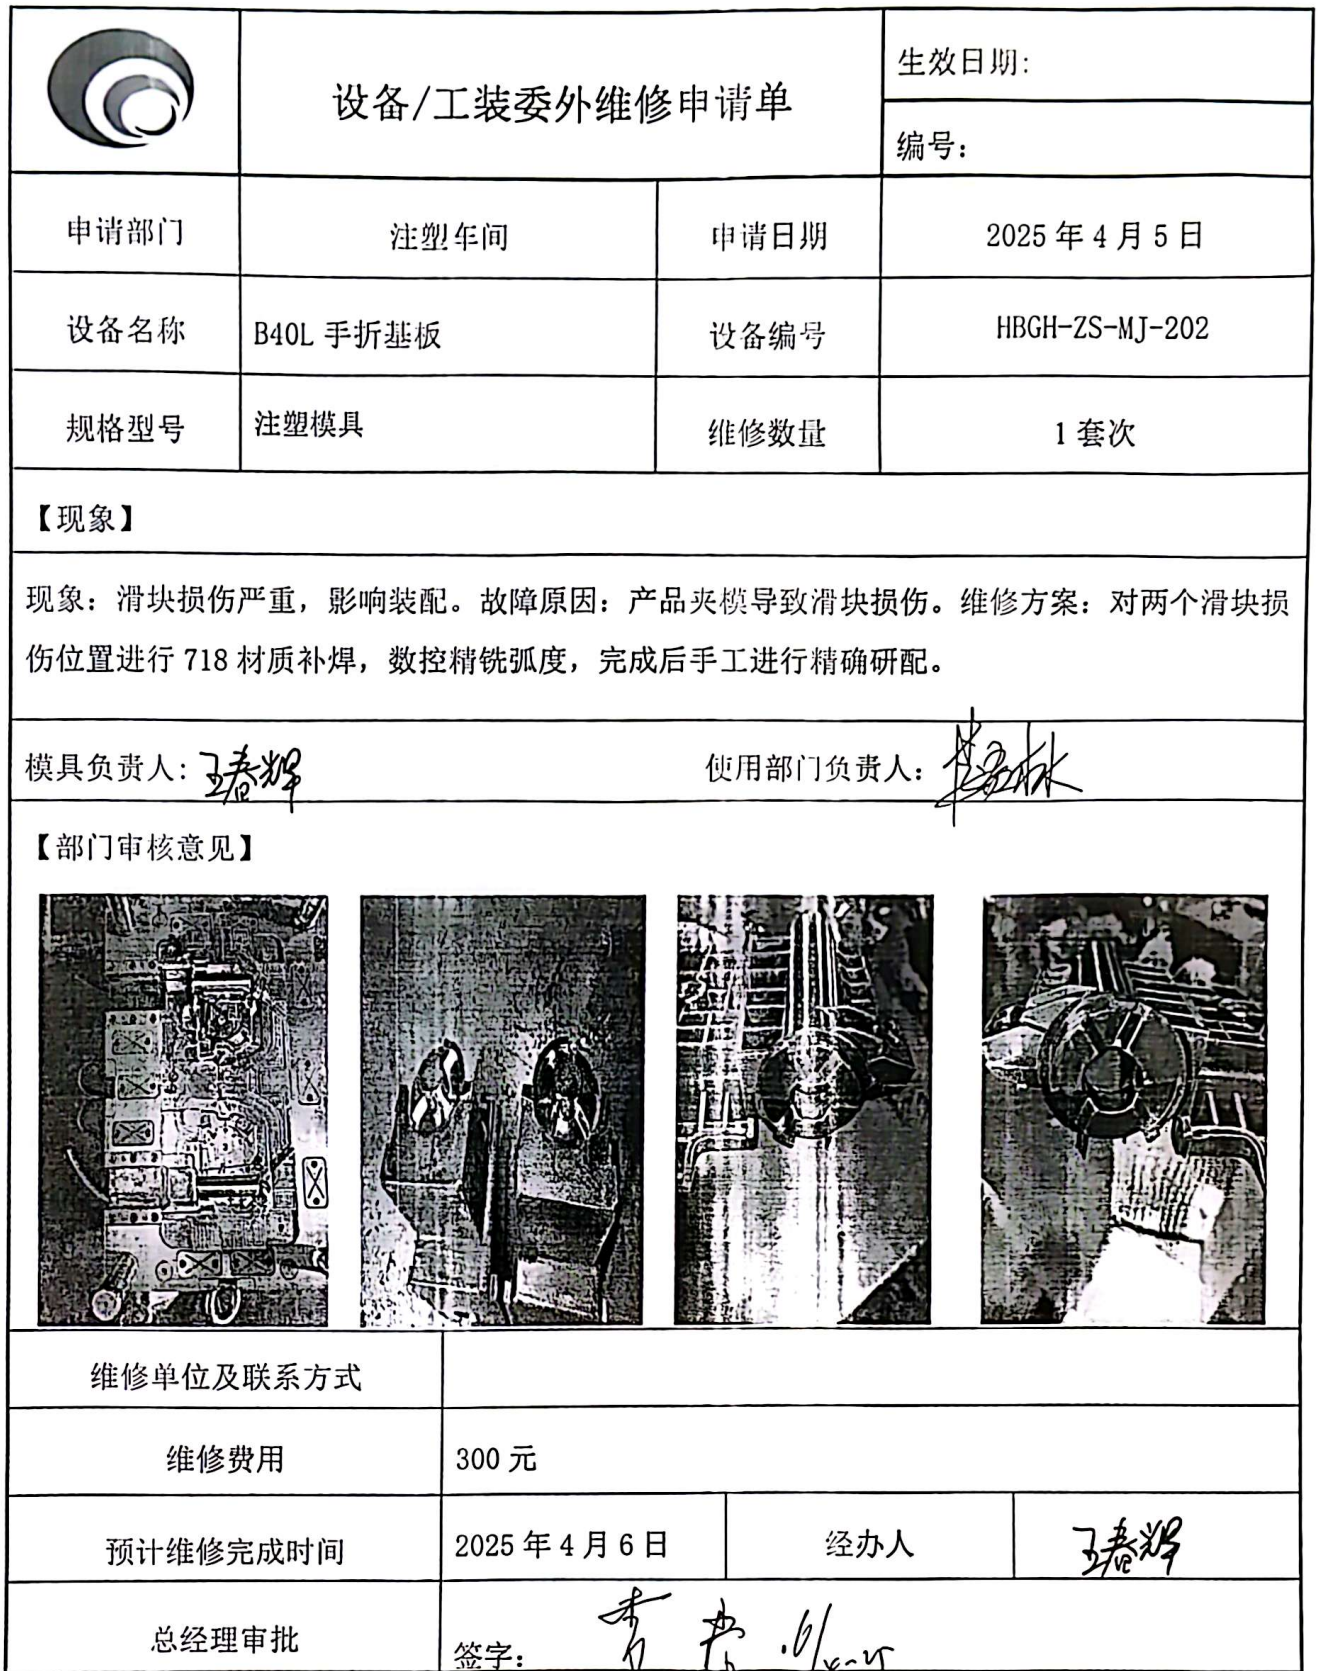 设备/工装委外维修申请单
生效日期:
编号:
申请部门 注塑车间 申请日期 2025年4月5日
设备名称 B40L 手折基板 设备编号 HBGH-ZS-MJ-202
规格型号 注塑模具 维修数量 1套次
【现象】
现象：滑块损伤严重，影响装配。故障原因：产品夹模导致滑块损伤。维修方案：对两个滑块损
伤位置进行 718 材质补焊，数控精铣弧度，完成后手工进行精确研配。
模具负责人: 王春辉 使用部门负责人:
【部门审核意见】
维修单位及联系方式
维修费用 300元
预计维修完成时间 2025年4月6日 经办人 王春辉
总经理审批 签字: